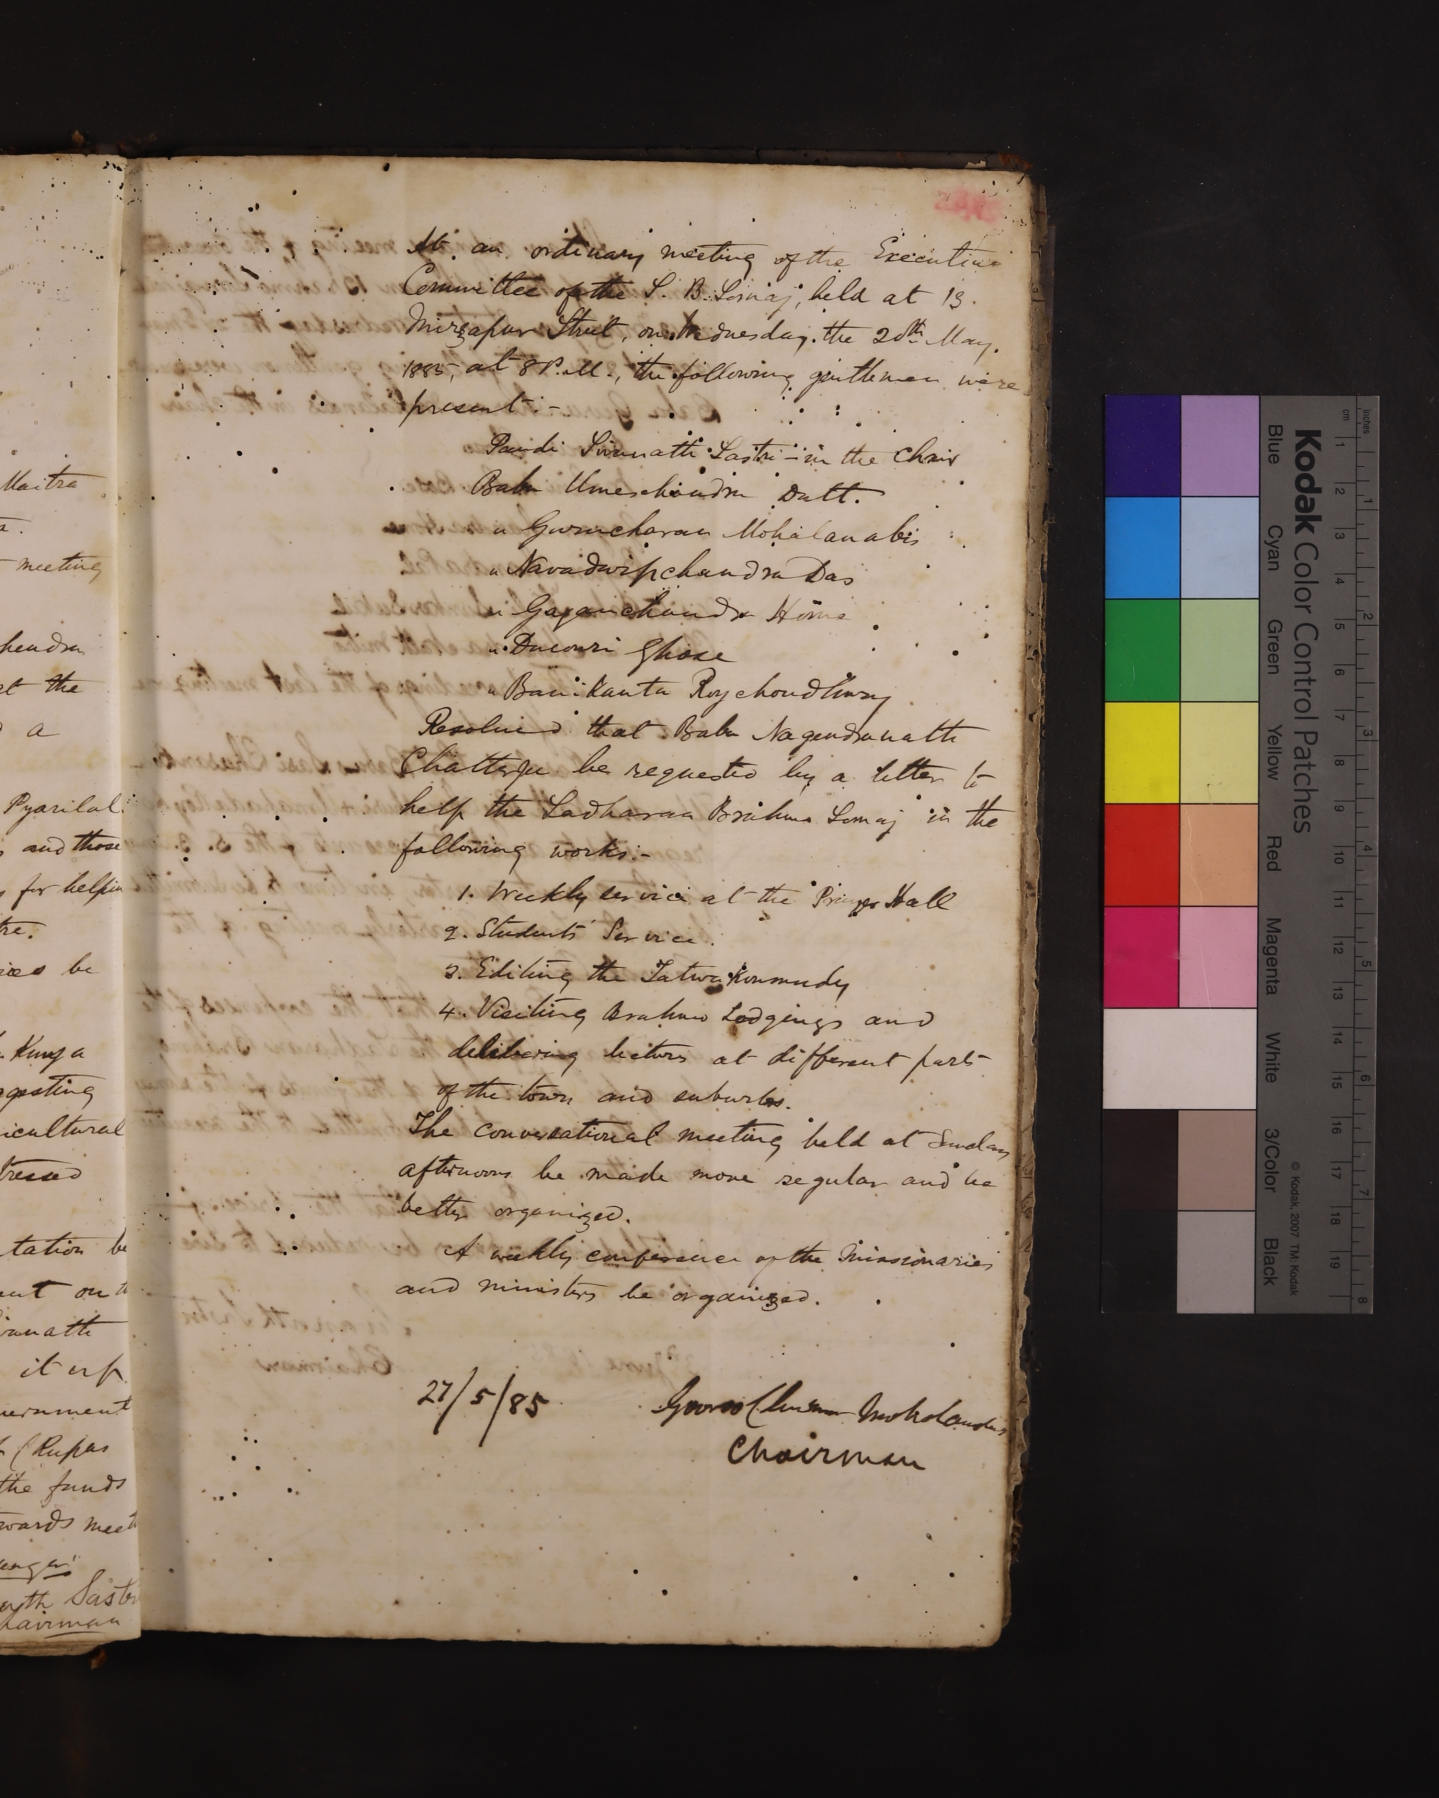 Maitra
meeting
hendra
at the
a
Pyarilal
and those
for helpin
be
Kunja
icultural
tressed
tation be
it up
(Rupees
the funds
wards meet
Sastri
hairman
At an ordinary meeting of the Executive
Committee of the S. B. Somaj, held at 13.
Mirzapur Street, on Wednesday. the 20th May.
1885, at 8 P.M., the following gentlemen were
present:-
Pandi Sivanath Sastri - in the Chair
Babu Umeschandra Datt.
" Gurucharan Mohalanabis
" Navadwipchandra Das
" Gaganchandra Home
" Ducouri Ghose
" Banikanta Roychoudhury
Resolved that Babu Nagendranath
Chatterju be requested by a letter to
help the Sadharan Brahmo Somaj in the
following works:-
1. Weekly service at the Prayer Hall
2. Students' Service.
3. Editing the Tatwa Koumudy
4. Visiting Brahmo Lodgings and
delivering lectures at different parts
of the town and suburbs.
The conversational meeting held at Sunday
afternoons be made more regular and be
better organized.
A weekly conference of the Missionaries
and ministers be organized.
27/5/85
Gooroo Churn Moholanobis
Chairman
Kodak Color Control Patches
Blue
Cyan
Green
Yellow
Red
Magenta
White
3/Color
Black
© Kodak, 2007 TM: Kodak
cm 1 2 3 4 5 6 7 8 9 10 11 12 13 14 15 16 17 18 19
inches 1 2 3 4 5 6 7 8